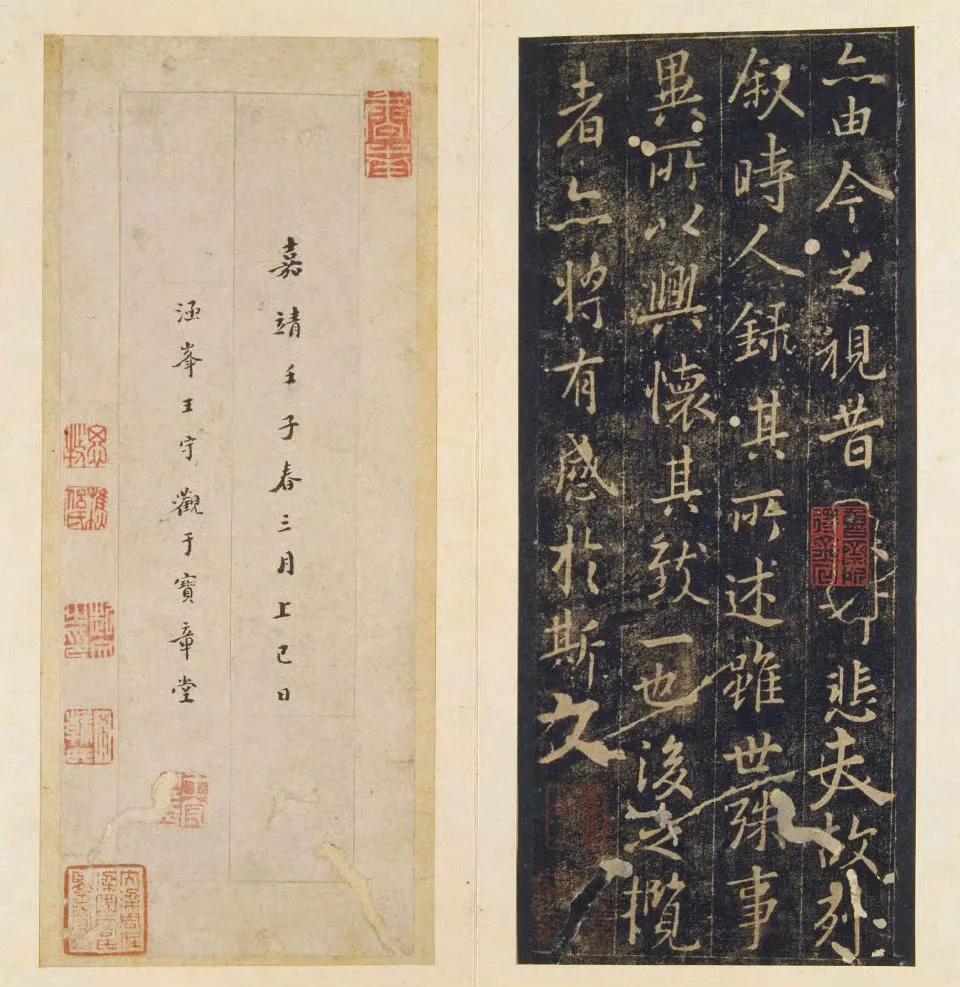 亦由今之視昔悲夫故列
叙時人録其所述雖世殊事
異所以興懷其致一也後之攬
者亦將有感於斯文
嘉靖壬子春三月上巳日
涵峯王守觀于寶章堂